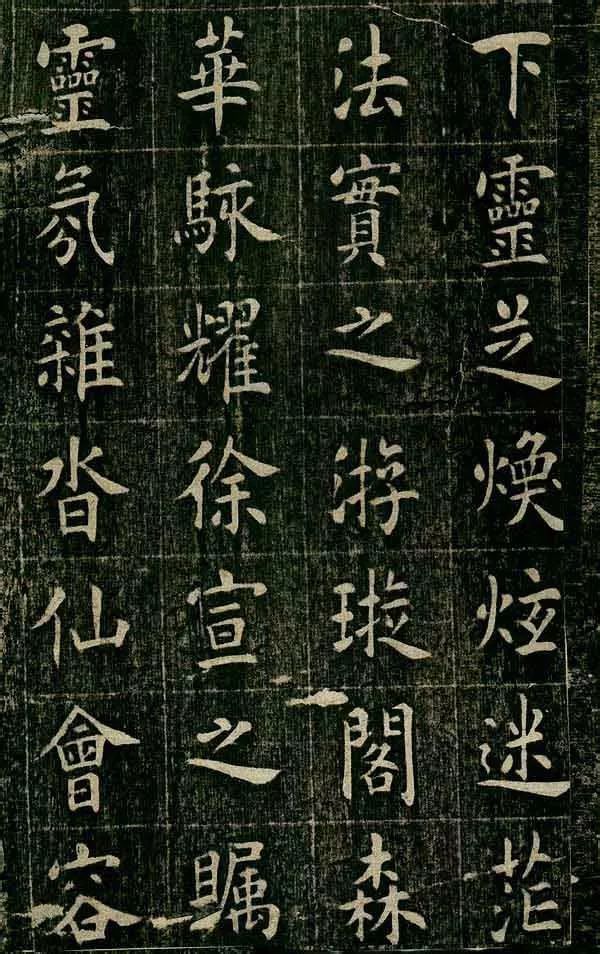 下靈芝煥炫迷茫
法實之游琁閣森
華駊耀徐宣之矚
靈氛雜沓仙會容